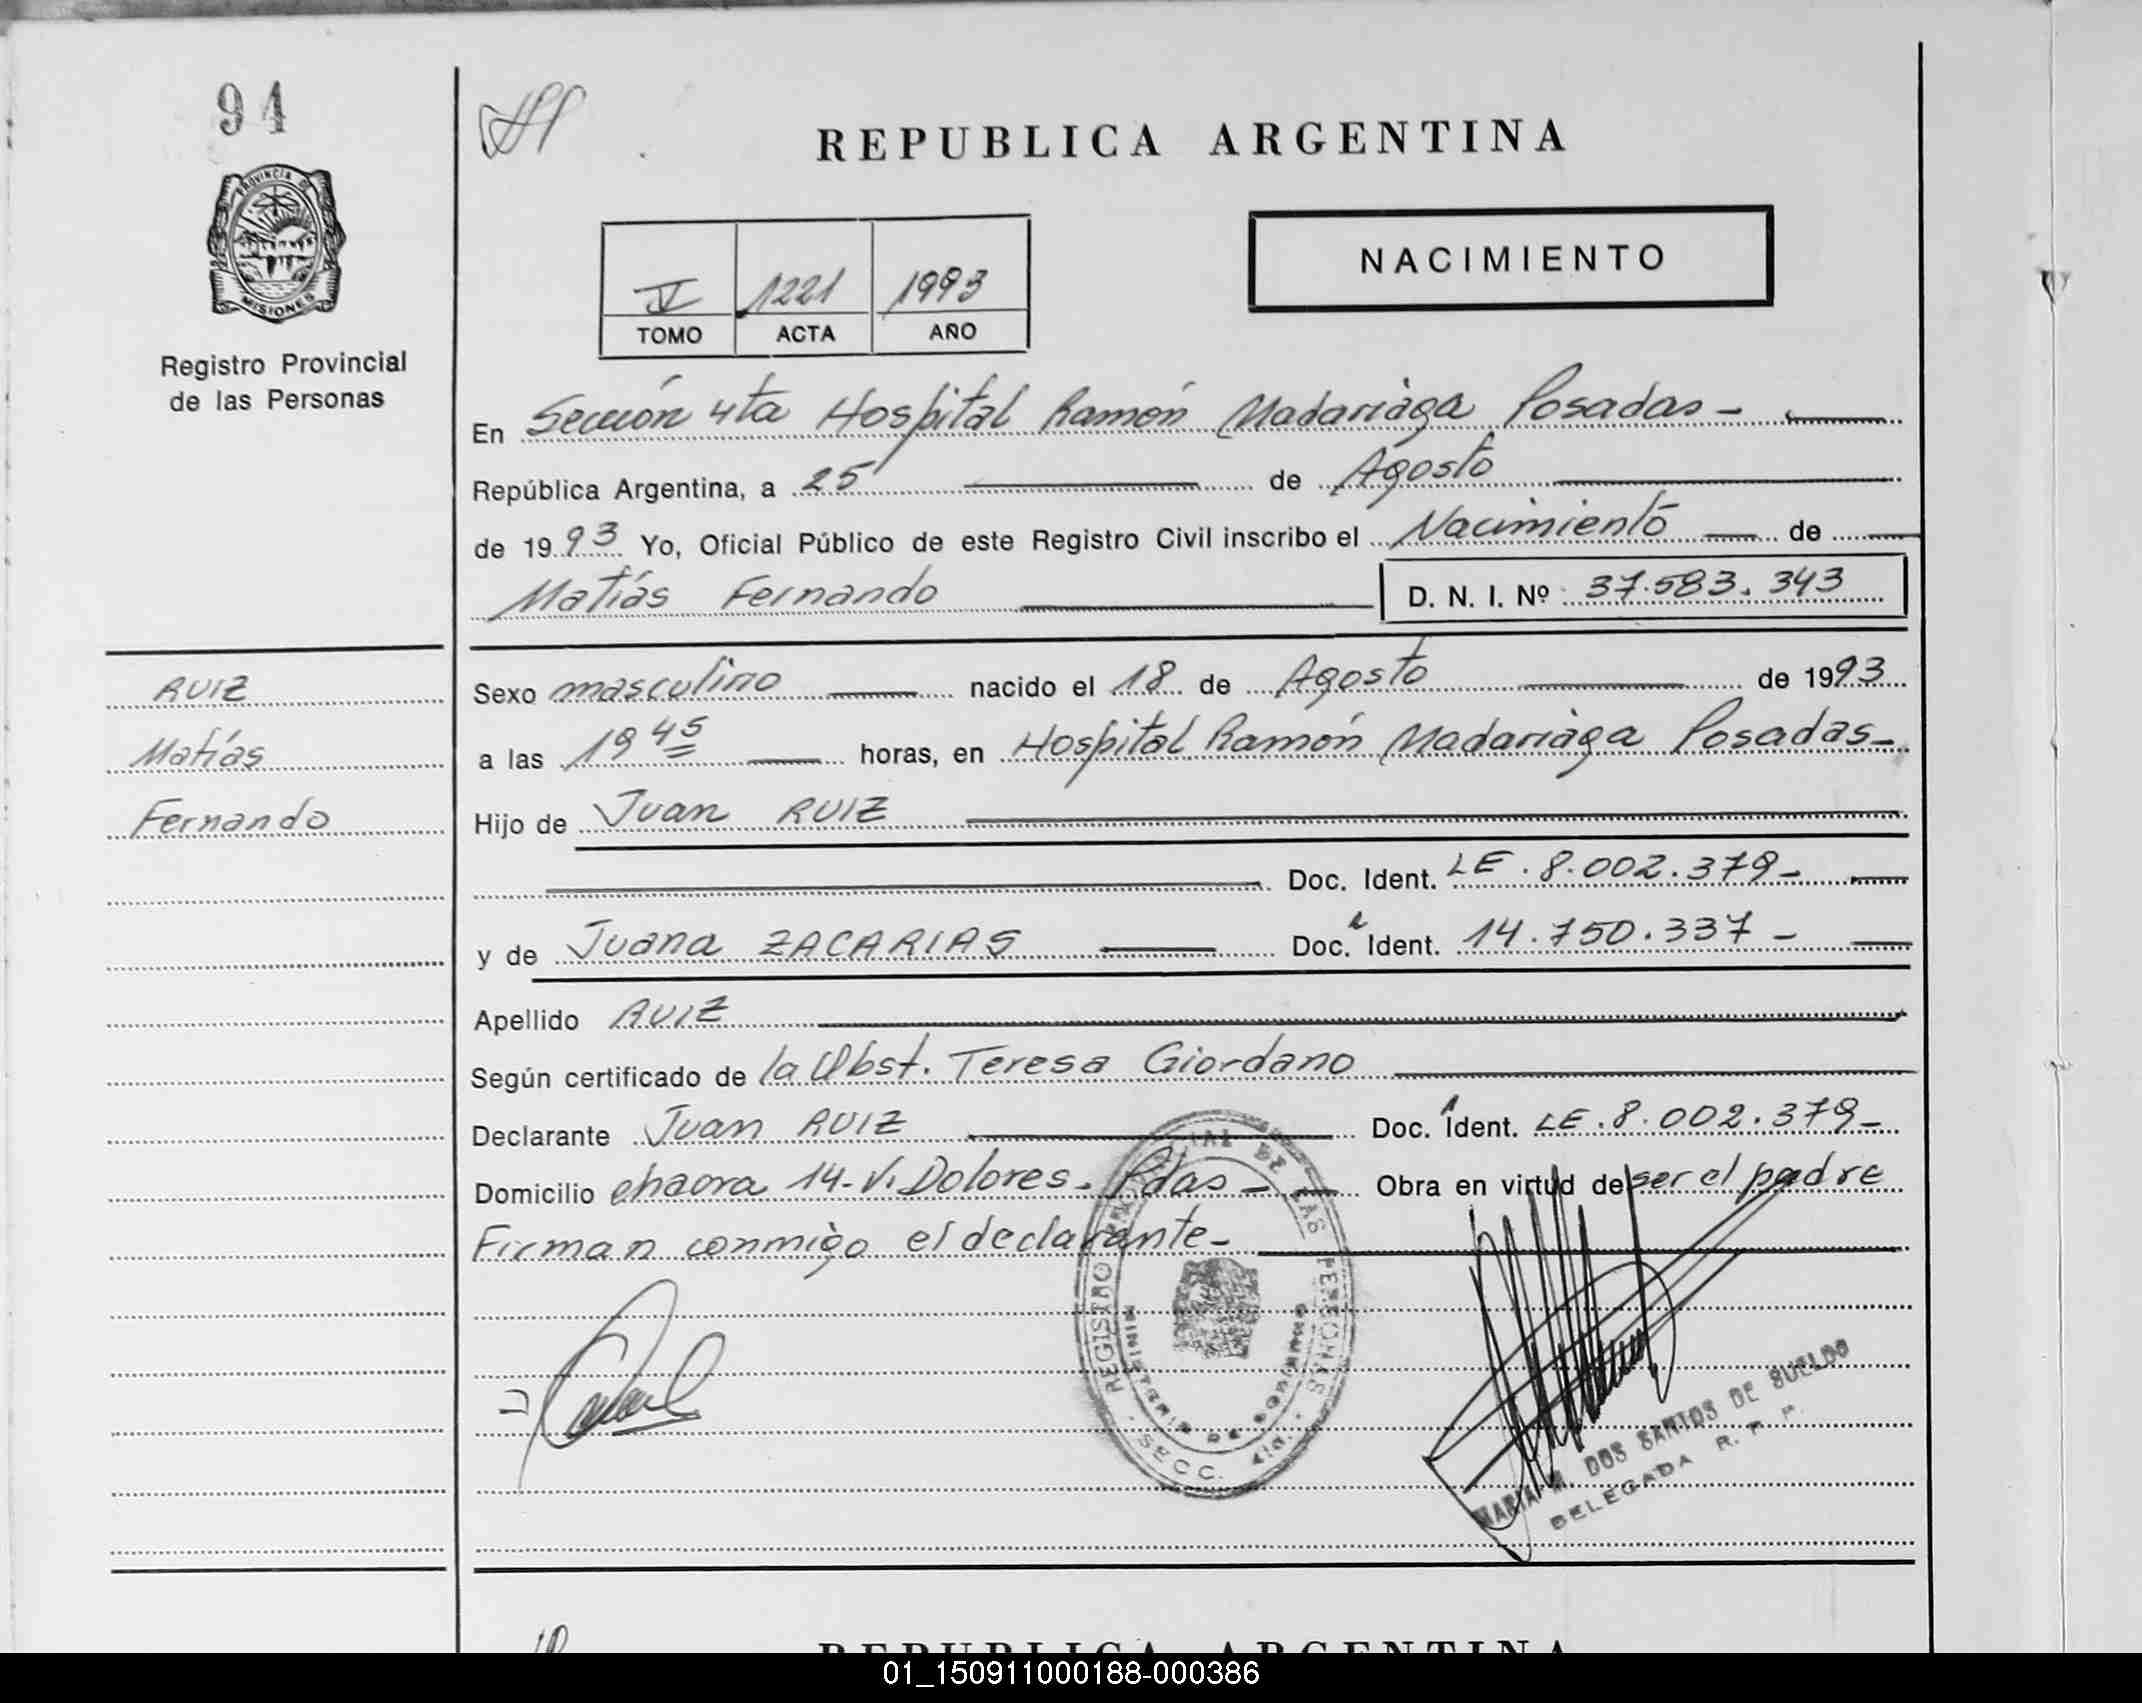 94
PROVINCIA DE
MISIONES
Registro Provincial
de las Personas
REPUBLICA ARGENTINA
V 1221 1993
TOMO ACTA AÑO
NACIMIENTO
En Sección 4ta Hospital Ramón Madariaga Posadas-
República Argentina, a 25 de Agosto
de 1993 Yo, Oficial Público de este Registro Civil inscribo el Nacimiento de
Matías Fernando D. N. I. Nº 37.583.343
RUIZ
Matías
Fernando
Sexo masculino nacido el 18 de Agosto de 1993
a las 19 45 horas, en Hospital Ramón Madariaga Posadas-
Hijo de Juan RUIZ
Doc. Ident. LE. 8.002.379-
y de Juana ZACARIAS Doc. Ident. 14.750.337-
Apellido RUIZ
Según certificado de la Obst. Teresa Giordano
Declarante Juan RUIZ Doc. Ident. LE.8.002.379-
Domicilio chacra 14-V. Dolores. Pdas- Obra en virtud de ser el padre
Firman conmigo el declarante-
REGISTRO PROVINCIAL DE LAS PERSONAS
MINISTERIO DE GOBIERNO
SECC. 4ta.
MARIA M. DOS SANTOS DE SUELDO
DELEGADA R. P. P.
REPUBLICA ARGENTINA
01_150911000188-000386